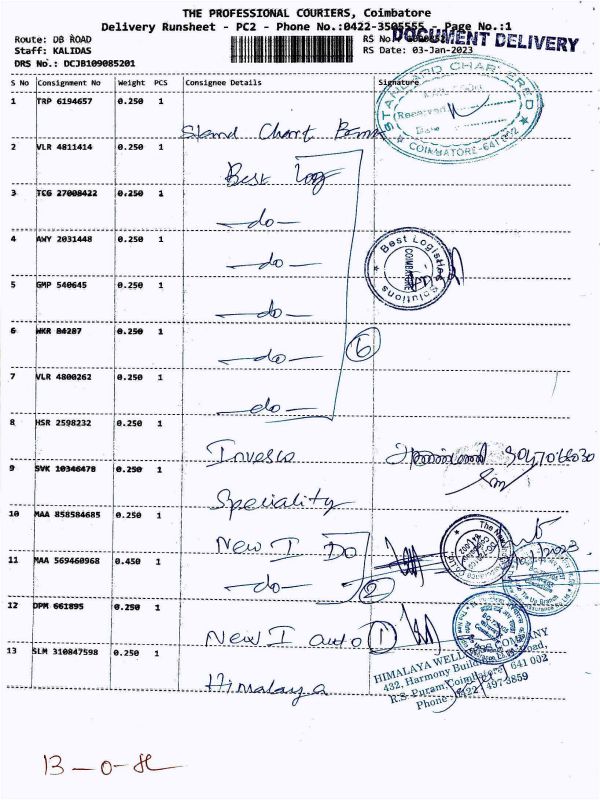 THE PROFESSIONAL COURIERS, Coimbatore
Delivery Runsheet - PC2 - Phone No.:0422-3505555 - Page No.:1
Route: DB ROAD
RS No.
DOCUMENT DELIVERY
Staff: KALIDAS
RS Date: 03-Jan-2023
DRS No.: DCJB109085201
S No Consignment No Weight PCS Consignee Details Signature
1 TRP 6194657 0.250 1
Stand Chart Bank
STANDARD CHARTERED
Received
Date
COIMBATORE-641 002
2 VLR 4811414 0.250 1
Best Log
3 TCG 27008422 0.250 1
-do-
4 AWY 2031448 0.250 1
-do-
Best Logistics Solutions
COIMBATORE
5 GMP 540645 0.250 1
-do-
6 WKR 84287 0.250 1
-do-
6
7 VLR 4800262 0.250 1
-do-
8 HSR 2598232 0.250 1
Invesco
9 SVK 10346478 0.250 1
Speciality
10 MAA 858584685 0.250 1
New I Do
11 MAA 569460968 0.450 1
-do-
2
12 DPM 661895 0.250 1
New I auto 1
13 SLM 310847598 0.250 1
Himalaya
HIMALAYA WELLNESS COMPANY
432, Harmony Building, Road,
R.S. Puram, Coimbatore 641 002
Phone: 0422 4973859
13-0-